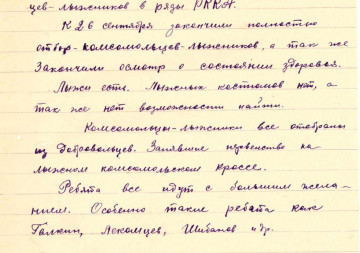 цев-лыжников в ряды РККА.
К 26 сентября закончили полностью
отбор-комсомольцев-лыжников, а так же
Закончили осмотр о состоянии здоровья.
Лыжи есть. Лыжных костюмов нет, а
так же нет возможности найти.
Комсомольцы-лыжники все отобраны
из Добровольцев. Занявшие первенство на
лыжном комсомольском кроссе.
Ребята все идут с большим жела-
нием. Особенно такие ребята как
Галкин, Лекомцев, Шибанов и др.